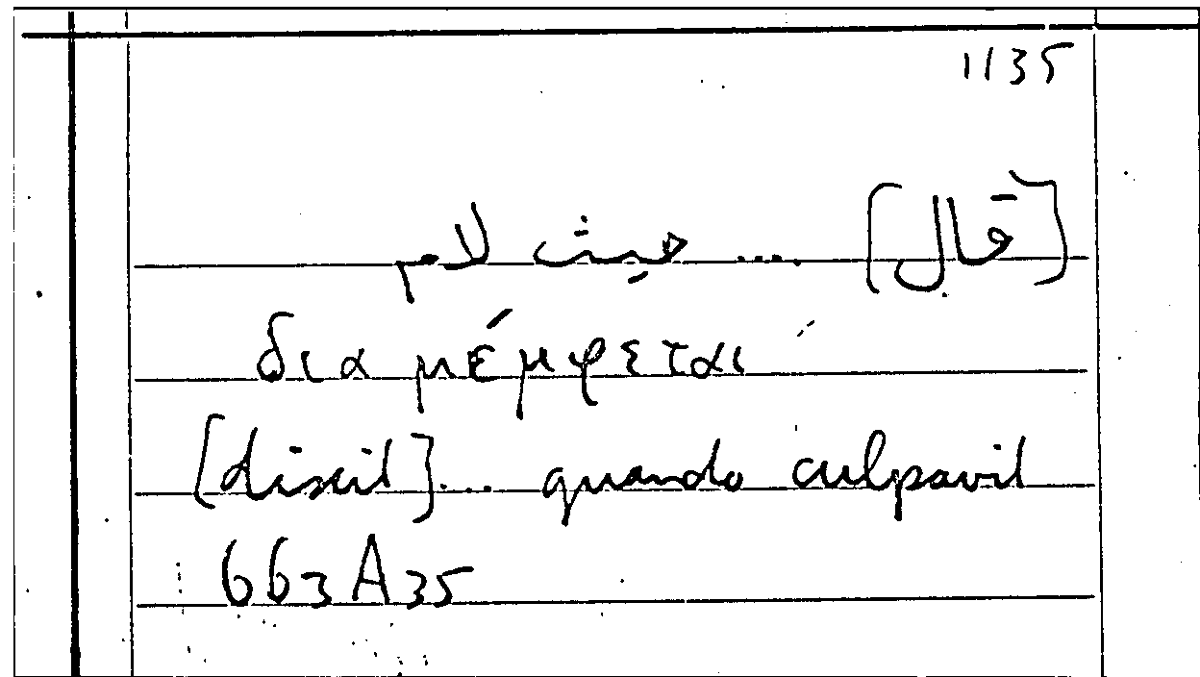 1135
[قال] .... حيث لام
δια μέμφεται
[dixit].... quando culpavit
663A35